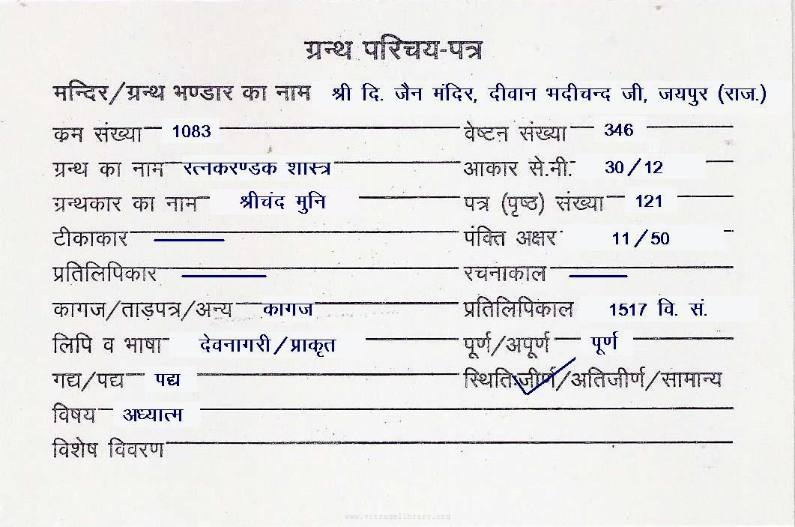 ग्रन्थ परिचय-पत्र
मन्दिर/ग्रन्थ भण्डार का नाम श्री दि. जैन मंदिर, दीवान भदीचन्द जी, जयपुर (राज.)
कम संख्या 1083 वेष्टन संख्या 346
ग्रन्थ का नाम रत्नकरण्डक शास्त्र आकार से.मी. 30/12
ग्रन्थकार का नाम श्रीचंद मुनि पत्र (पृष्ठ) संख्या 121
टीकाकार पंक्ति अक्षर 11/50
प्रतिलिपिकार रचनाकाल
कागज/ताड़पत्र/अन्य कागज प्रतिलिपिकाल 1517 वि. सं.
लिपि व भाषा देवनागरी/प्राकृत पूर्ण/अपूर्ण पूर्ण
गद्य/पद्य पद्य स्थिति जीर्ण/अतिजीर्ण/सामान्य
विषय अध्यात्म
विशेष विवरण
www.vitragelibrary.com